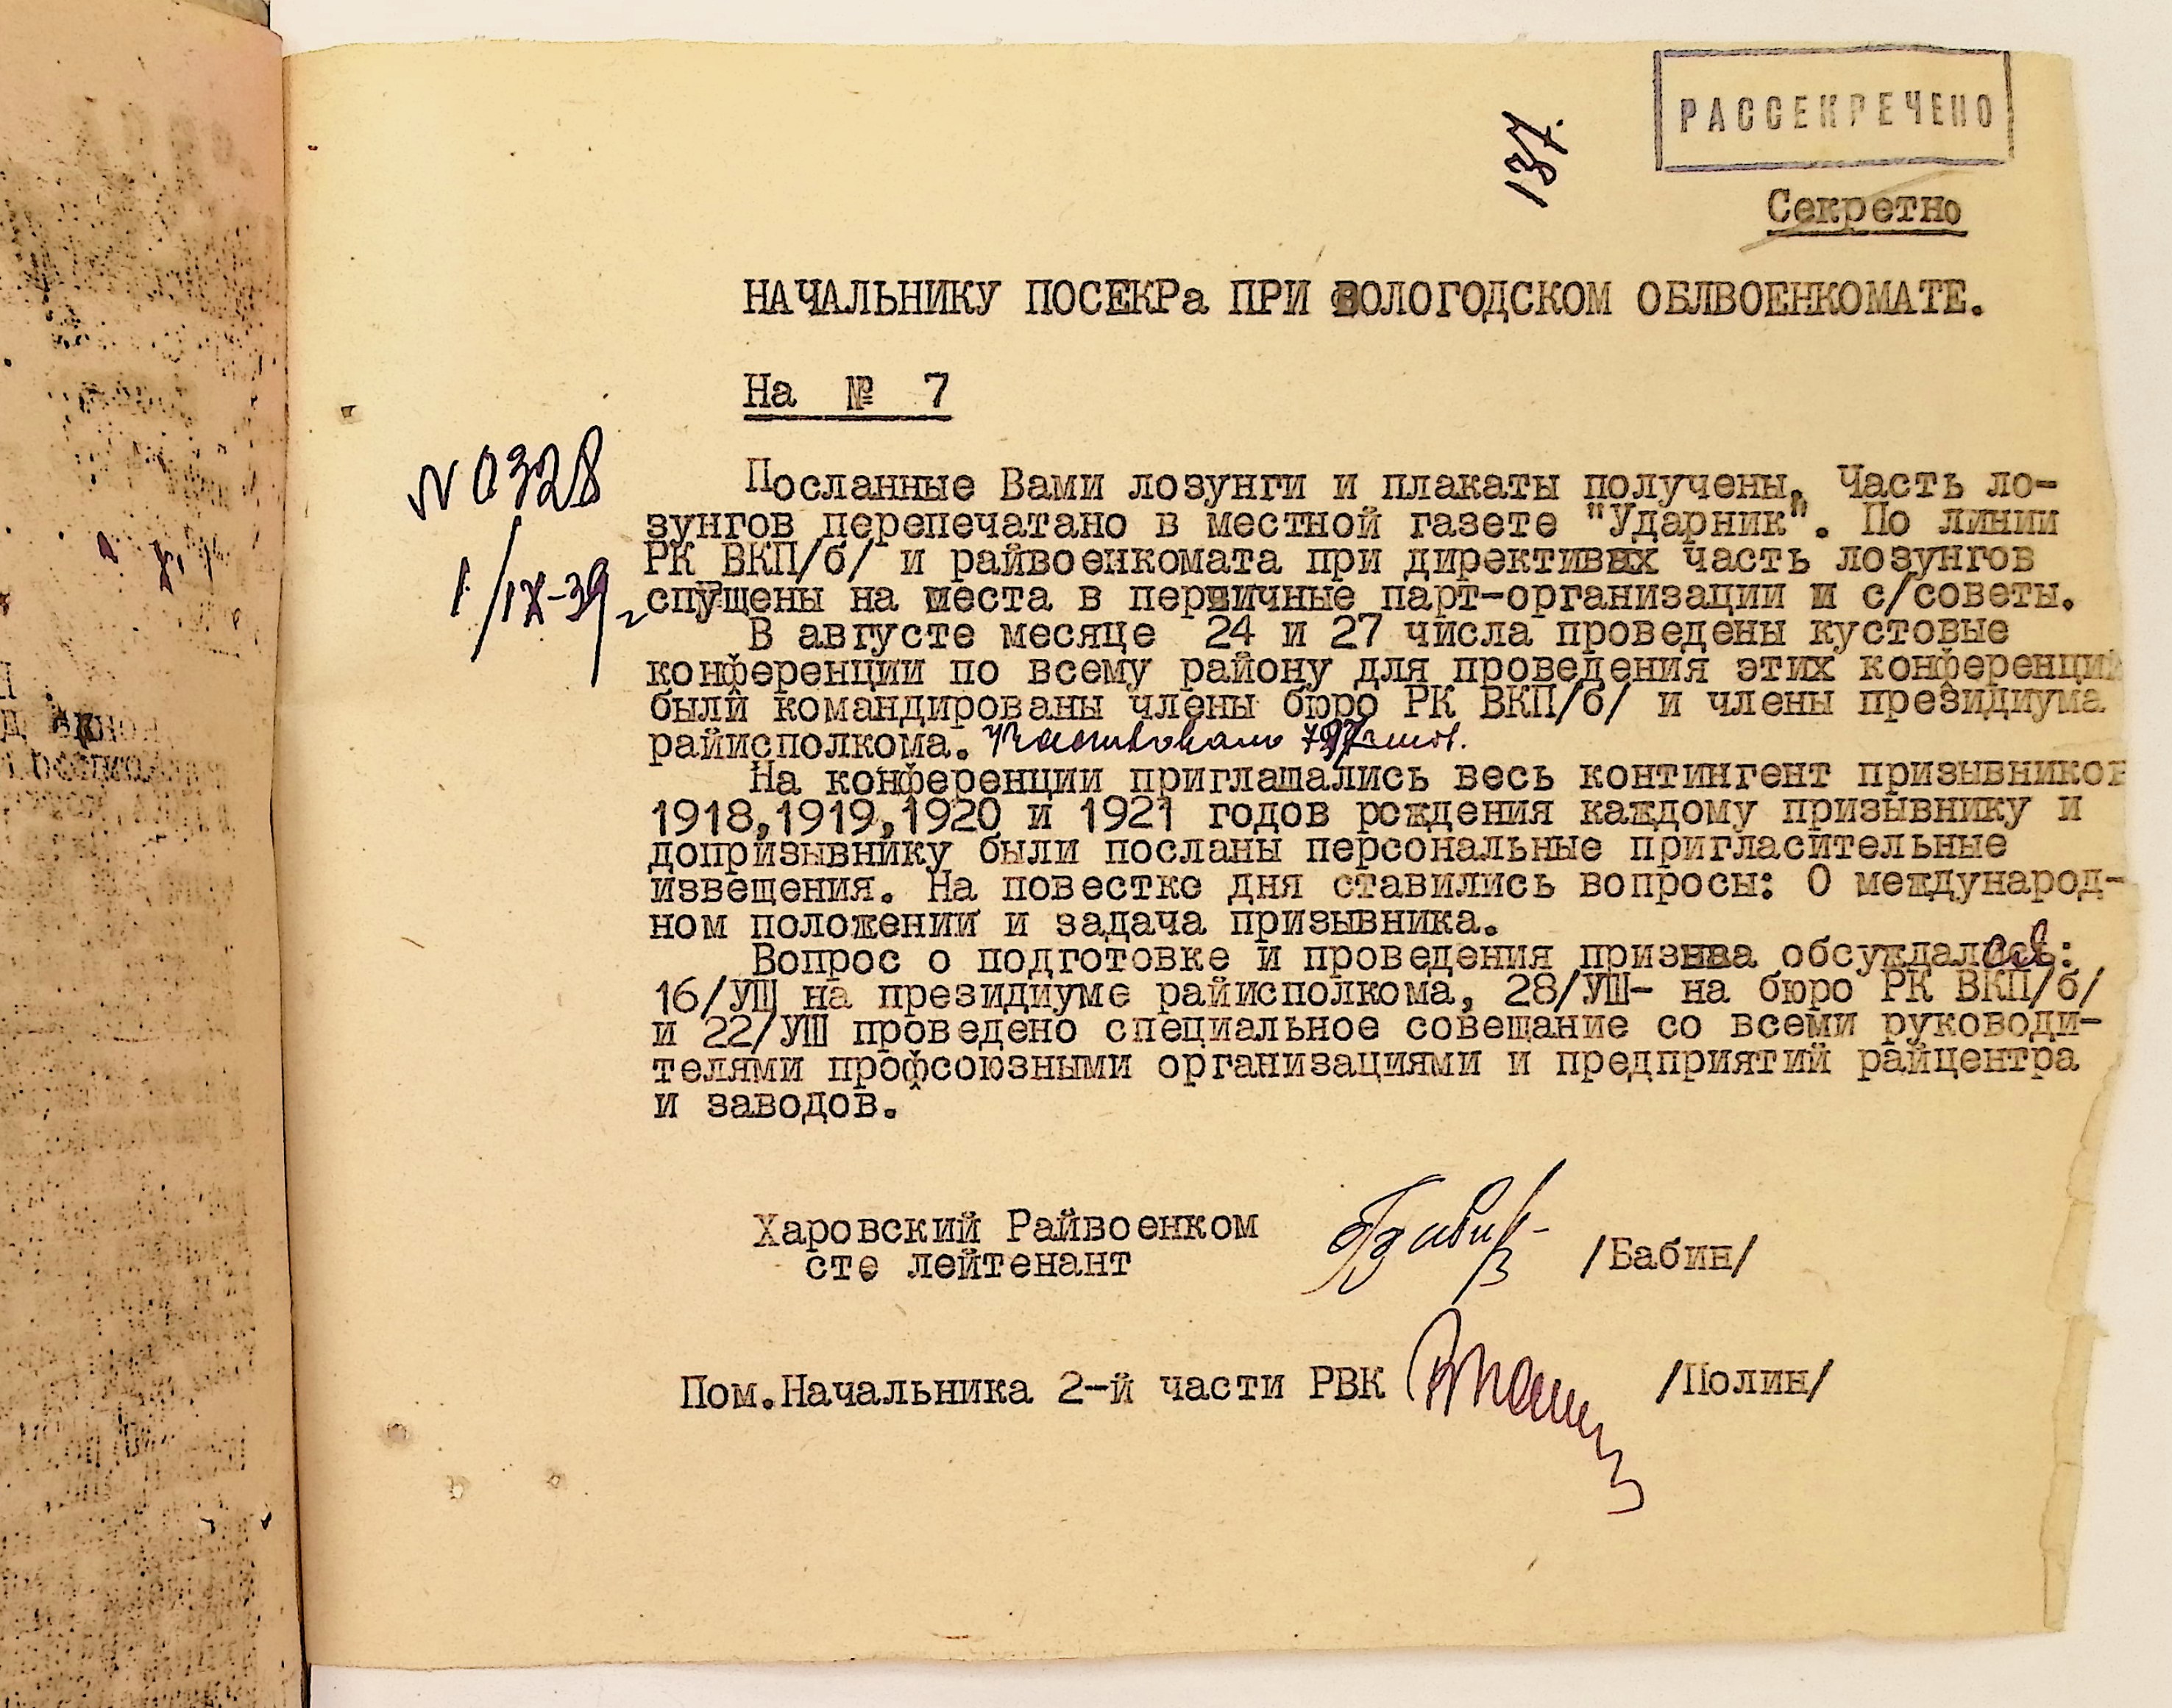 РАССЕКРЕЧЕНО
137.
Секретно
НАЧАЛЬНИКУ ПОСЕКРа ПРИ ВОЛОГОДСКОМ ОБЛВОЕНКОМАТЕ.
На № 7
N 0328
1/IX-39г
Посланные Вами лозунги и плакаты получены, Часть ло-
зунгов перепечатано в местной газете "Ударник". По линии
РК ВКП/б/ и райвоенкомата при директивах часть лозунгов
спущены на места в первичные парт-организации и с/советы.
В августе месяце 24 и 27 числа проведены кустовые
конференции по всему району для проведения этих конференций
были командированы члены бюро РК ВКП/б/ и члены президиума
райисполкома. Участвовало
На конференции приглашались весь контингент призывников
1918,1919,1920 и 1921 годов рождения каждому призывнику и
допризывнику были посланы персональные пригласительные
извещения. На повестке дня ставились вопросы: О международ-
ном положении и задача призывника.
Вопрос о подготовке и проведения призыва обсуждался:
16/УШ на президиуме райисполкома, 28/УШ- на бюро РК ВКП/б/
и 22/УШ проведено специальное совещание со всеми руководи-
телями профсоюзными организациями и предприятий райцентра
и заводов.
Харовский Райвоенком
сте лейтенант /Бабин/
Пом.Начальника 2-й части РВК /Полин/